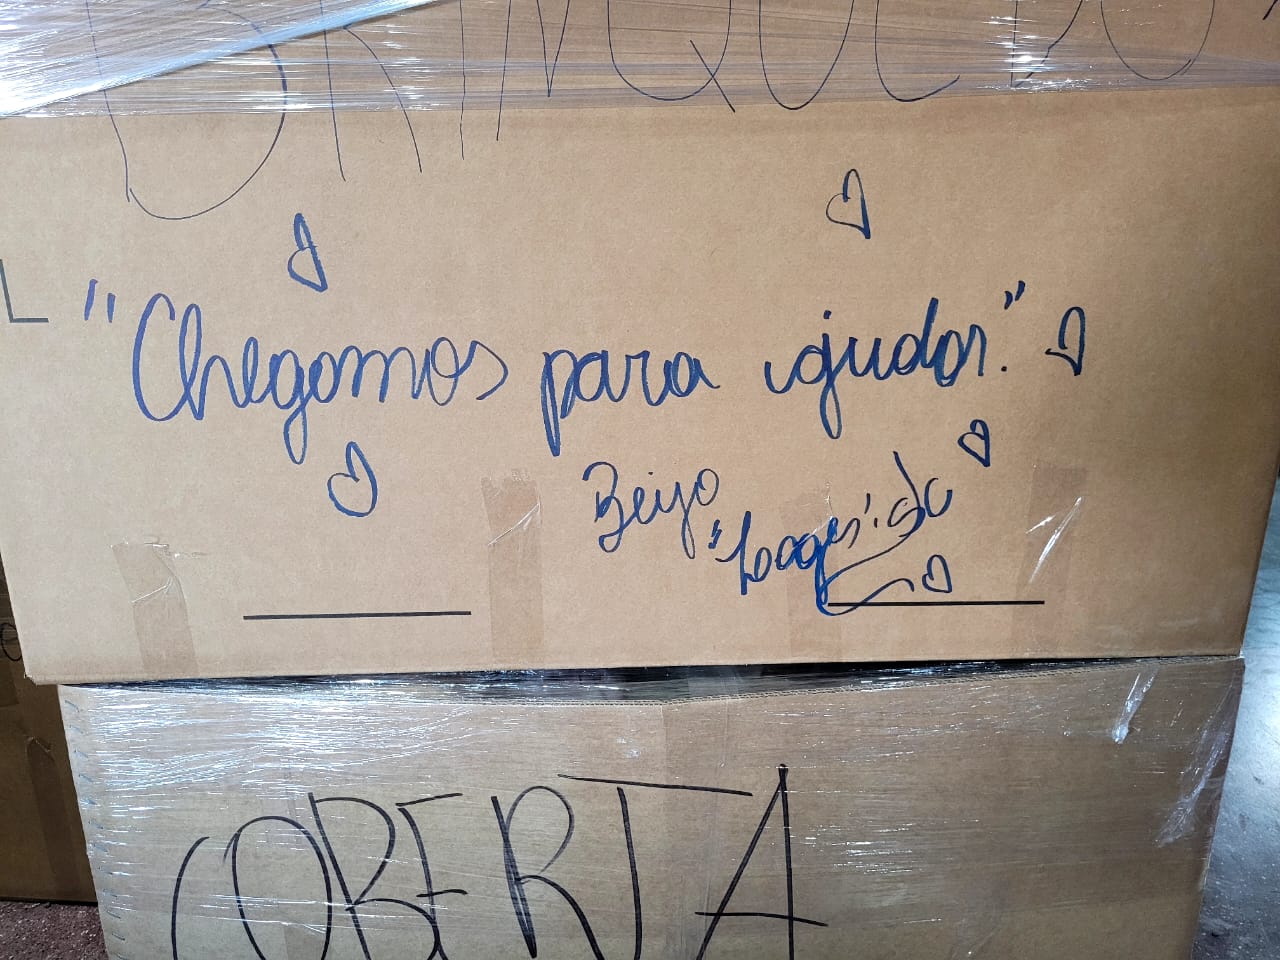 BRINQUEDO
"Chegamos para ajudar."
Beijo
COBERTA